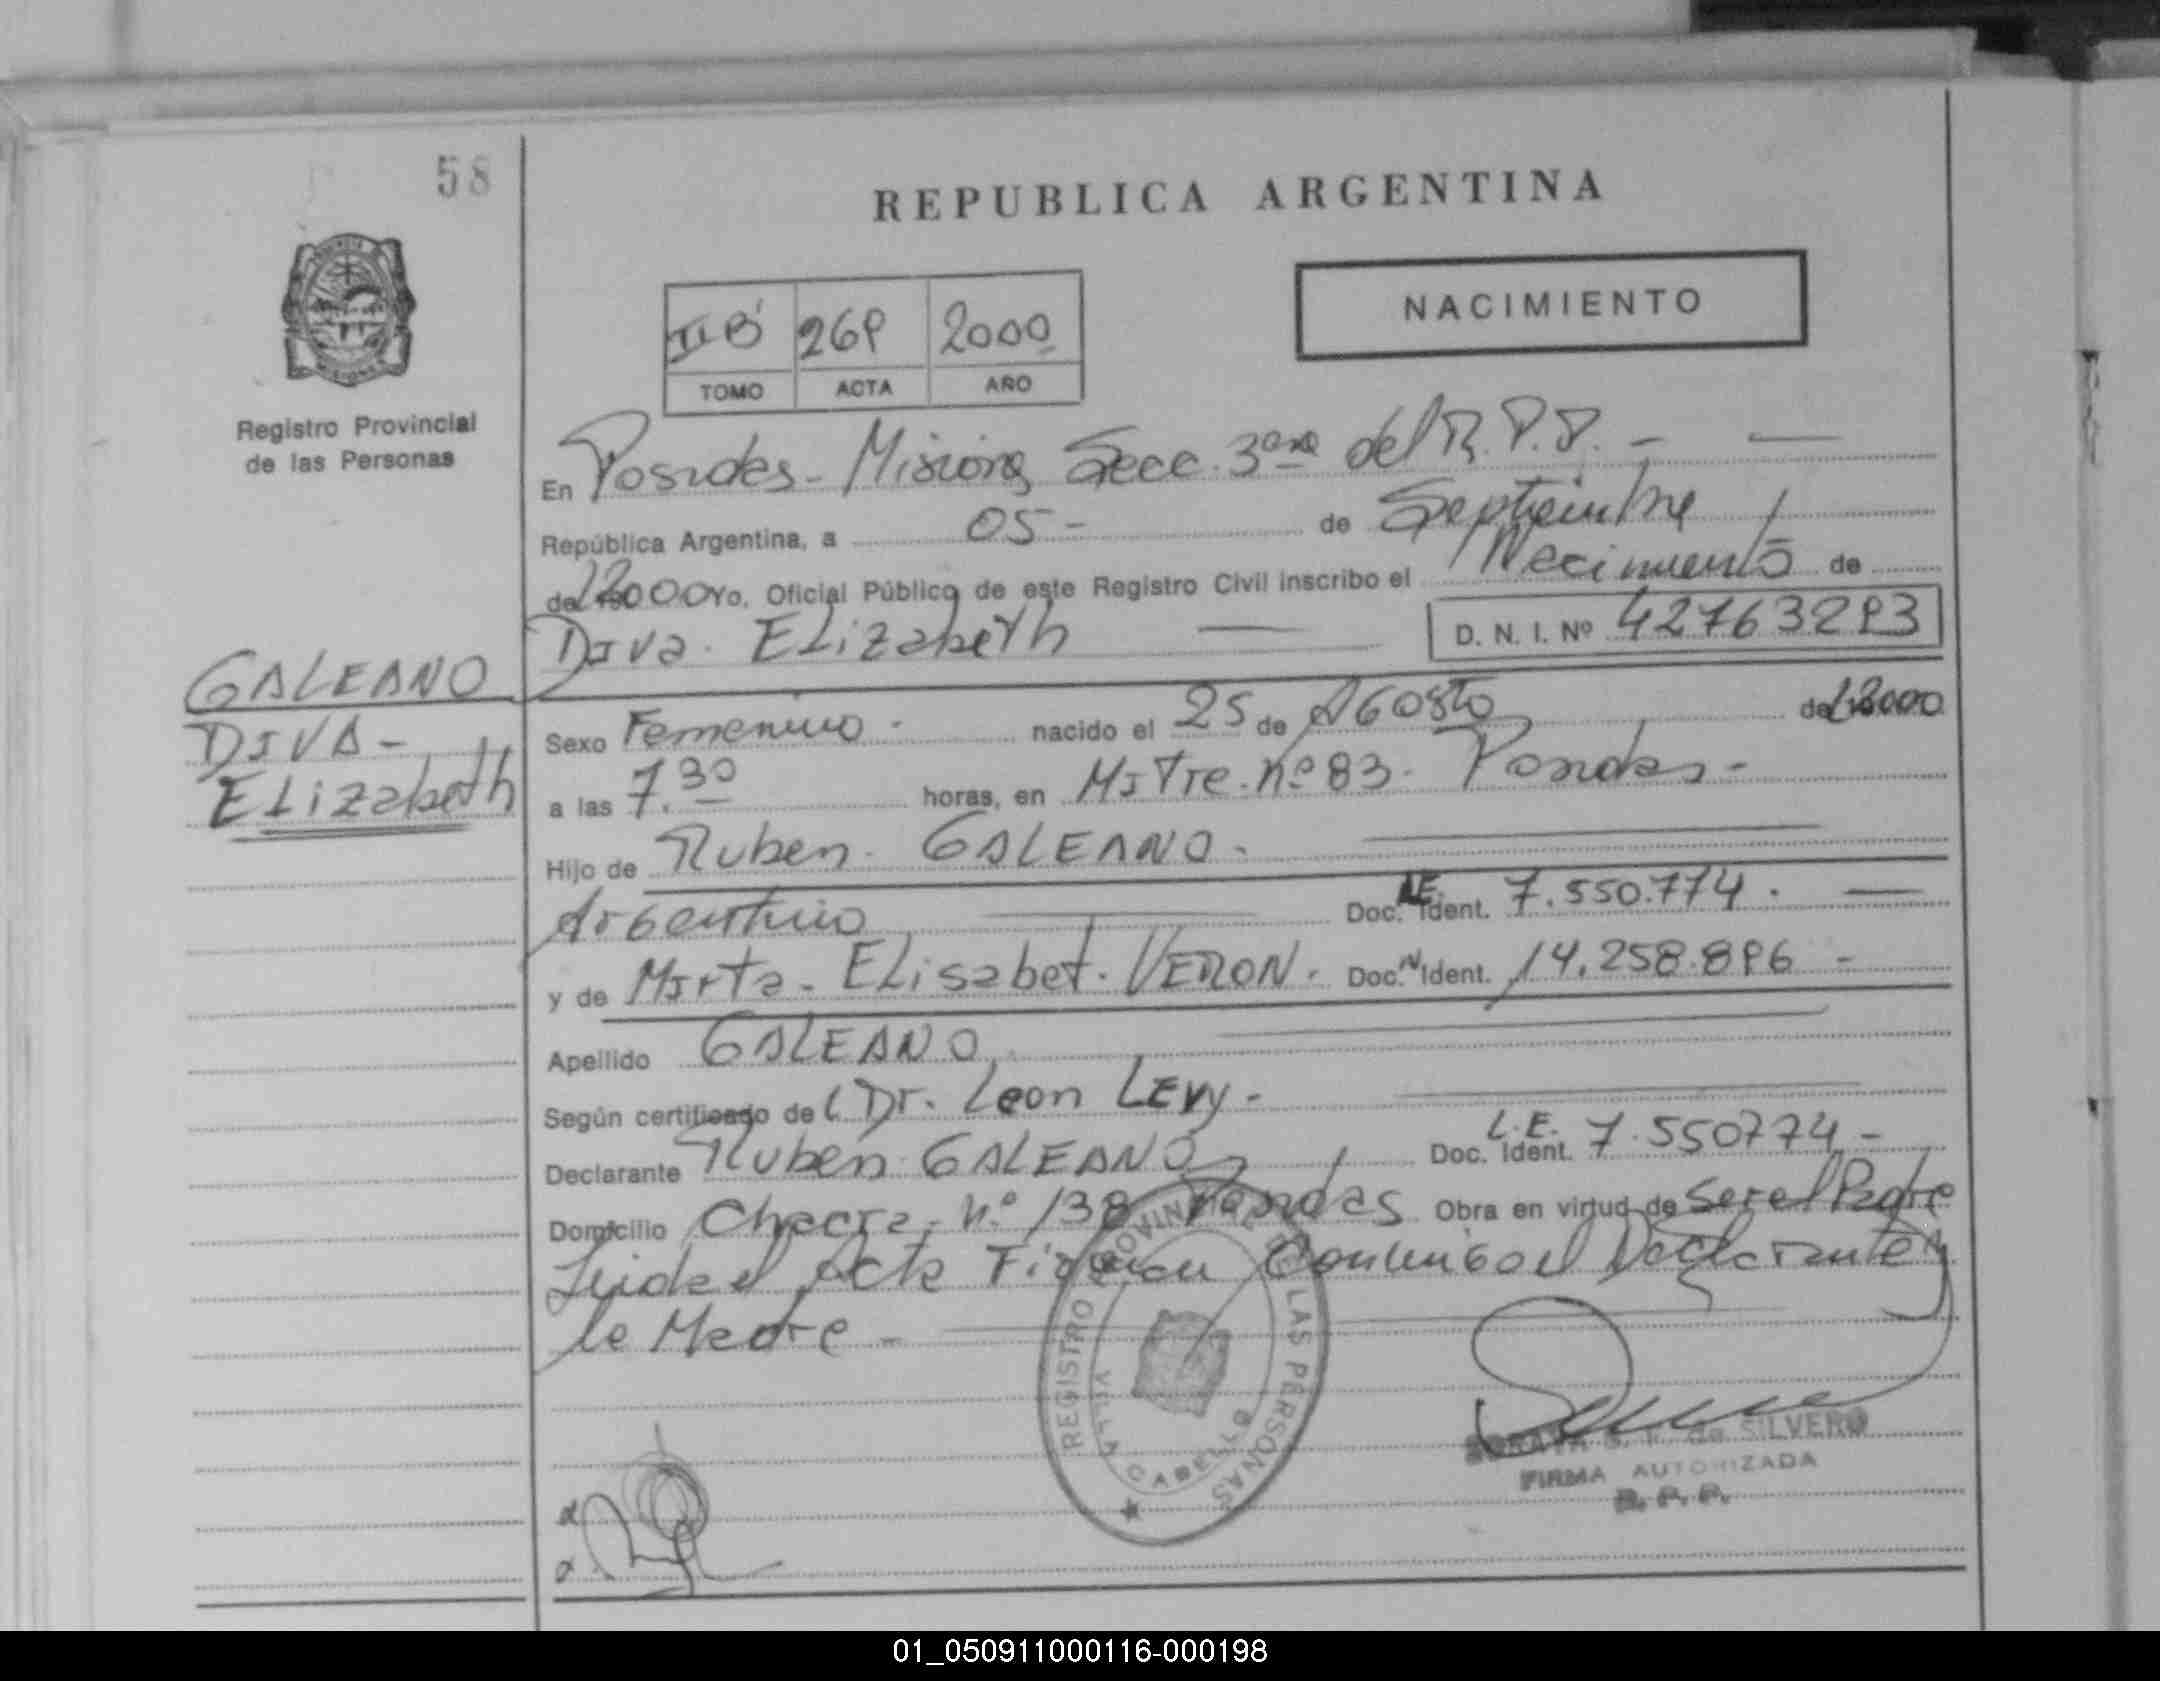 58
REPUBLICA ARGENTINA
NACIMIENTO
II B 269 2000
TOMO ACTA AÑO
Registro Provincial
de las Personas
En Posadas - Misiones Secc. 3era del R.P.P. -
República Argentina, a 05 - de Septiembre
de 2000 Yo, Oficial Público de este Registro Civil inscribo el Nacimiento de
Diva. Elizabeth D. N. I. Nº 42763293
GALEANO
DIVA -
Elizabeth
Sexo Femenino - nacido el 25 de Agosto de 2000
a las 7.30 horas, en Mitre. nº 83. Posadas -
Hijo de Ruben. GALEANO.
Argentino Doc. L.E. Ident. 7.550.774.
y de Mirta - Elisabet. VERON. Doc. N Ident. 14.258.896 -
Apellido GALEANO
Según certificado de Dr. Leon Levy -
Declarante Ruben GALEANO Doc. L.E. Ident. 7.550774 -
Domicilio Chacra - n.º 138 Posadas Obra en virtud de Ser el Padre
Leida el Acta Firman Conmigo el Declarante y
la Madre -
REGISTRO PROVINCIAL DE LAS PERSONAS
VILLA CABELLO
S. F. de SILVERO
FIRMA AUTORIZADA
R. P. P.
01_050911000116-000198